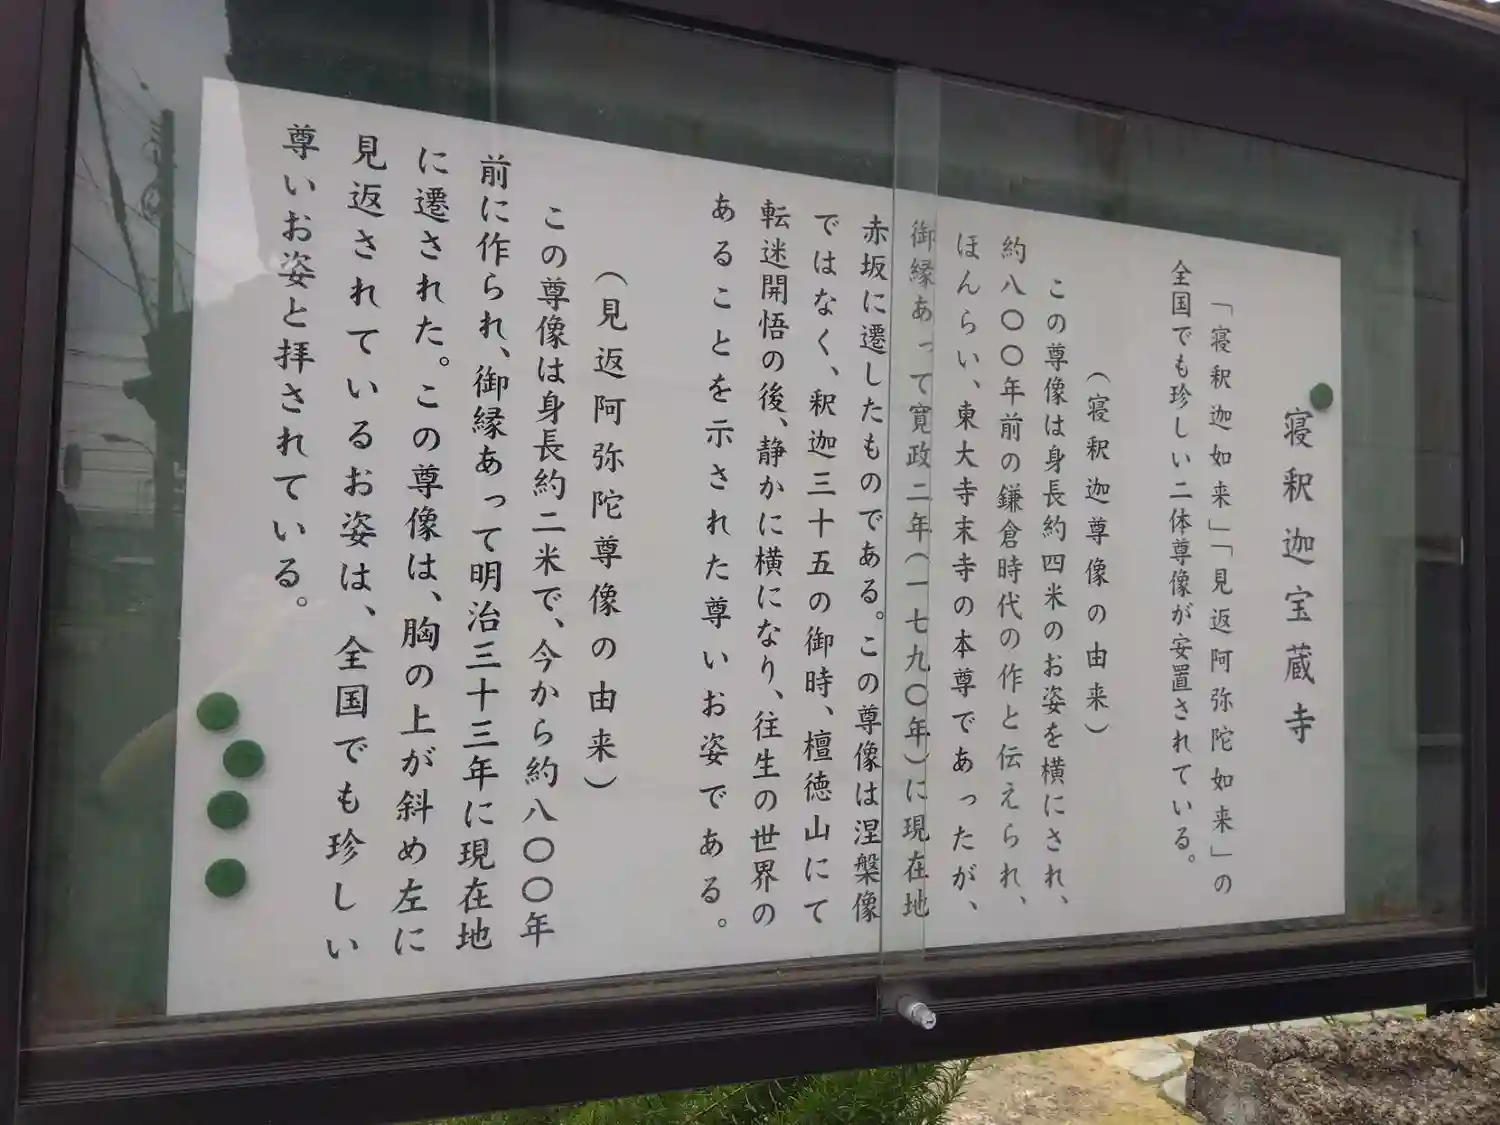 寝釈迦宝蔵寺
「寝釈迦如来」「見返阿弥陀如来」の
全国でも珍しい二体尊像が安置されている。
(寝釈迦尊像の由来)
この尊像は身長約四米のお姿を横にされ、
約八〇〇年前の鎌倉時代の作と伝えられ、
ほんらい、東大寺末寺の本尊であったが、
御縁あって寛政二年(一七九〇年)に現在地
赤坂に遷したものである。この尊像は涅槃像
ではなく、釈迦三十五の御時、檀徳山にて
転迷開悟の後、静かに横になり、往生の世界の
あることを示された尊いお姿である。
(見返阿弥陀尊像の由来)
この尊像は身長約二米で、今から約八〇〇年
前に作られ、御縁あって明治三十三年に現在地
に遷された。この尊像は、胸の上が斜め左に
見返されているお姿は、全国でも珍しい
尊いお姿と拝されている。